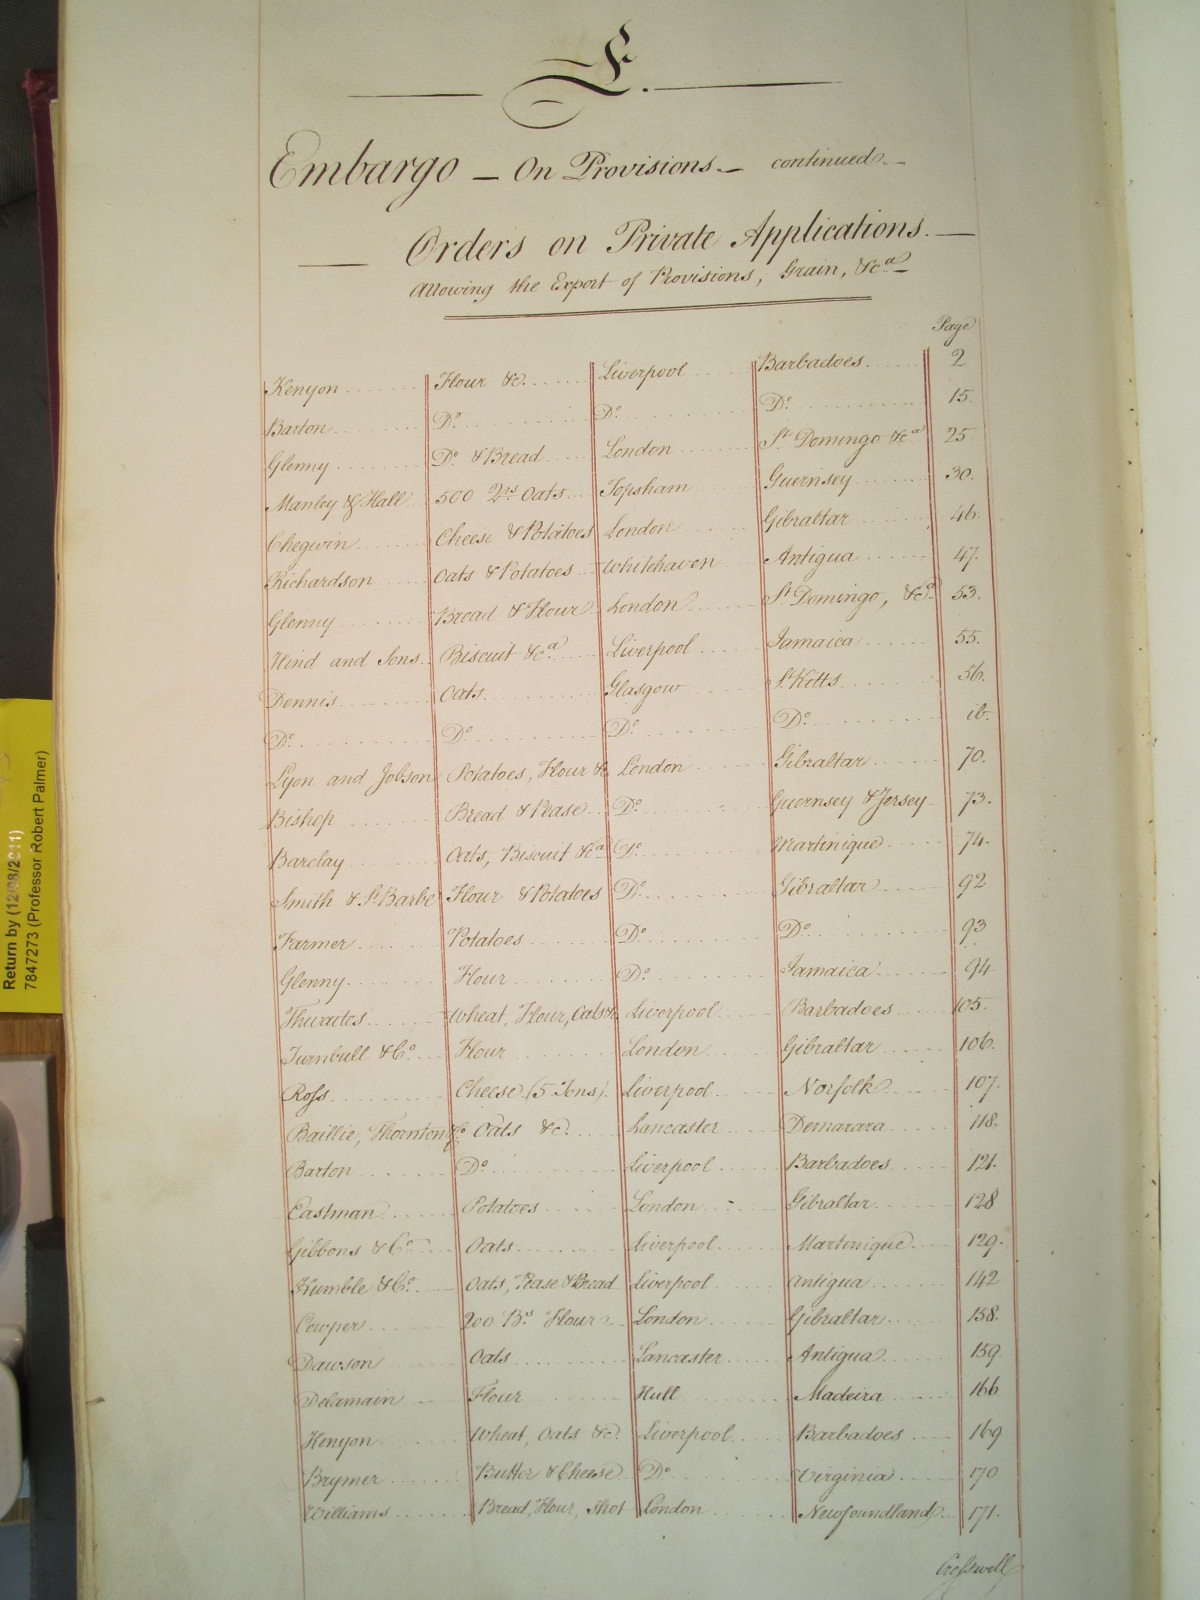 E.
Embargo — On Provisions — continued. —
Orders on Private Applications. —
Allowing the Export of Provisions, Grain, &ca —
Page
Kenyon Flour &c. Liverpool Barbadoes 2
Barton Do Do Do 15.
Glenny Do & Bread London St Domingo &ca 25
Manley & Hall 500 Qrs Oats Topsham Guernsey 30.
Chegwin Cheese & Potatoes London Gibraltar 46.
Richardson Oats & Potatoes Whitehaven Antigua 47.
Glenny Bread & Flour London St Domingo, &ca 53.
Hind and Sons Biscuit &ca Liverpool Jamaica 55.
Dennis Oats Glasgow St Kitts 56.
Do Do Do Do ib.
Lyon and Jobson Potatoes, Flour &c London Gibraltar 70.
Bishop Bread & Pease Do Guernsey & Jersey 73.
Barclay Oats, Biscuit &ca Do Martinique 74.
Smith & St Barbe Flour & Potatoes Do Gibraltar 92
Farmer Potatoes Do Do 93
Glenny Flour Do Jamaica 94
Thwaites Wheat, Flour, Oats &c Liverpool Barbadoes 105.
Turnbull & Co Flour London Gibraltar 106.
Ross Cheese (5 Tons) Liverpool Norfolk 107.
Baillie, Thornton & Co Oats &c. Lancaster Demarara 118.
Barton Do Liverpool Barbadoes 121.
Eastman Potatoes London Gibraltar 128
Gibbons & Co Oats Liverpool Martinique 129.
Humble & Co Oats, Pease & Bread Liverpool Antigua 142
Cowper 200 Bs Flour London Gibraltar 158.
Dawson Oats Lancaster Antigua 159
Delamain Flour Hull Madeira 166
Kenyon Wheat, Oats &c. Liverpool Barbadoes 169
Brymer Butter & Cheese Do Virginia 170
Williams Bread, Flour, Shot London Newfoundland 171.
Cresswell
Return by (12/08/2011)
7847273 (Professor Robert Palmer)